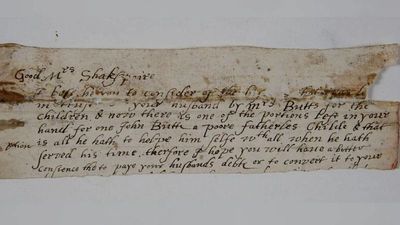 Good Mrs Shakspaire
consider of the
in truste your husband by mrs Butts for the
children & now there is one of the portions lefte in your
hand for one John Butte a poore fatherles Childe & that
ption is all he hath to helpe him selfe wthall when he hath
served his time, therfore I hope you will have a better
consience the to paye your husbands debte or to convert it to your